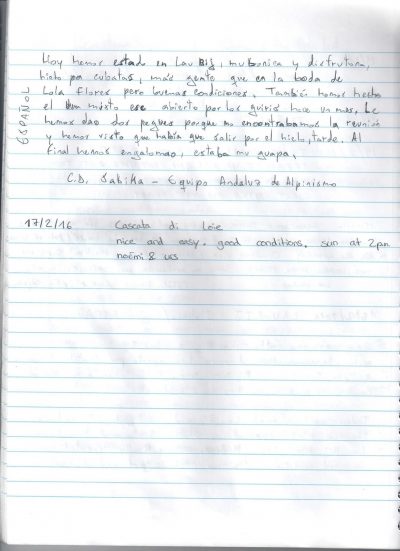 Hoy hemos estad en Lau Bij, mu bonica y disfrutona,
hielo pa cubatas, más gente que en la boda de
Lola Flores pero buenas condiciones. También hemos hecho
el mixto ese abierto por los guiris hace un mes. Le
hemos dao dos pegues porque no encontrabamos la reunión
y hemos visto que había que salir por el hielo, tarde. Al
final hemos engalomao, estaba mu guapa.
ESPAÑOL
C.D. Sabika - Equipo Andaluz de Alpinismo
17/2/16 Cascata di Loie
nice and easy. good conditions, sun at 2pm
noëmi & urs